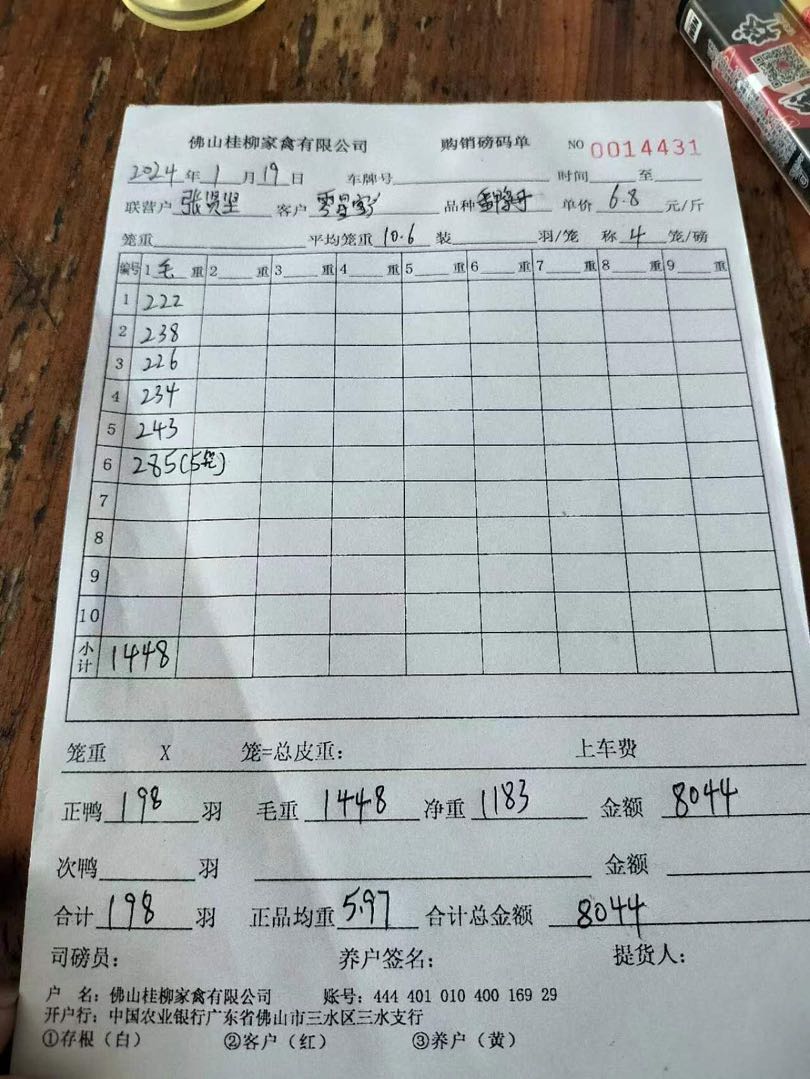 佛山桂柳家禽有限公司 购销磅码单 NO 0014431
2024年1月19日 车牌号 时间 至
联营户 张贤坚 客户 品种 单价 6.8 元/斤
笼重 平均笼重 10.6 装 羽/笼 称 4 笼/磅
编号 1 毛 重 2 重 3 重 4 重 5 重 6 重 7 重 8 重 9 重
1 222
2 238
3 226
4 234
5 243
6 285(5笼)
7
8
9
10
小计 1448
笼重 X 笼=总皮重: 上车费
正鸭 198 羽 毛重 1448 净重 1183 金额 8044
次鸭 羽 金额
合计 198 羽 正品均重 5.97 合计总金额 8044
司磅员: 养户签名: 提货人:
户 名: 佛山桂柳家禽有限公司 账号: 444 401 010 400 169 29
开户行: 中国农业银行广东省佛山市三水区三水支行
①存根(白) ②客户(红) ③养户(黄)